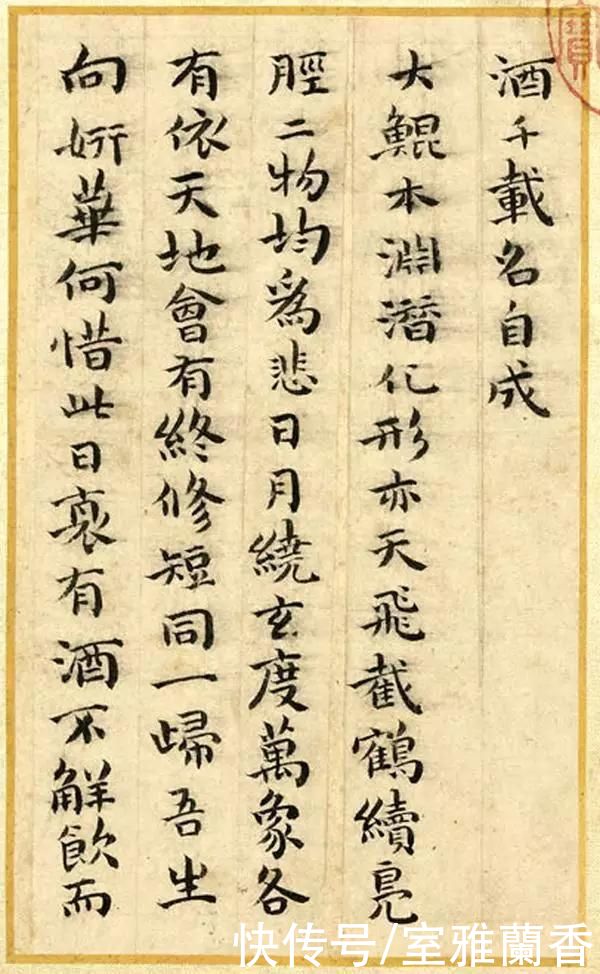 酒千載名自成
大鯤本淵潛化形亦天飛截鶴續鳧
脛二物均為悲日月繞玄度萬象各
有依天地會有終修短同一歸吾生
向妍華何惜此日裏有酒不解飲而
快传号/室雅蘭香